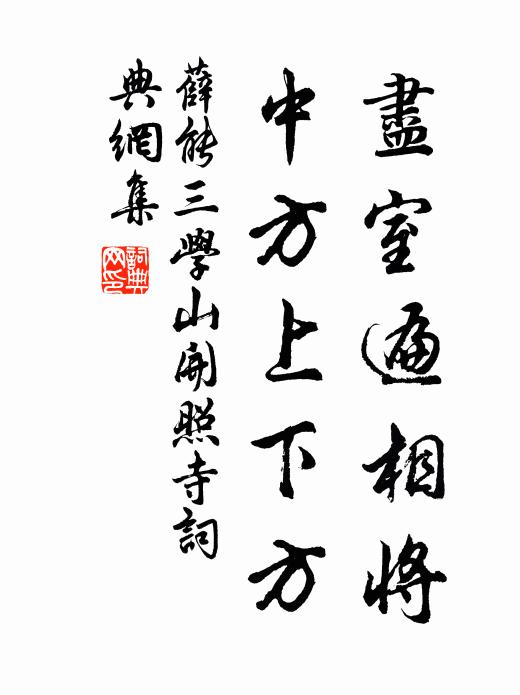 盡室遍相將
中方上下方
薛能三學山開照寺詞
典網集
詞典
网印